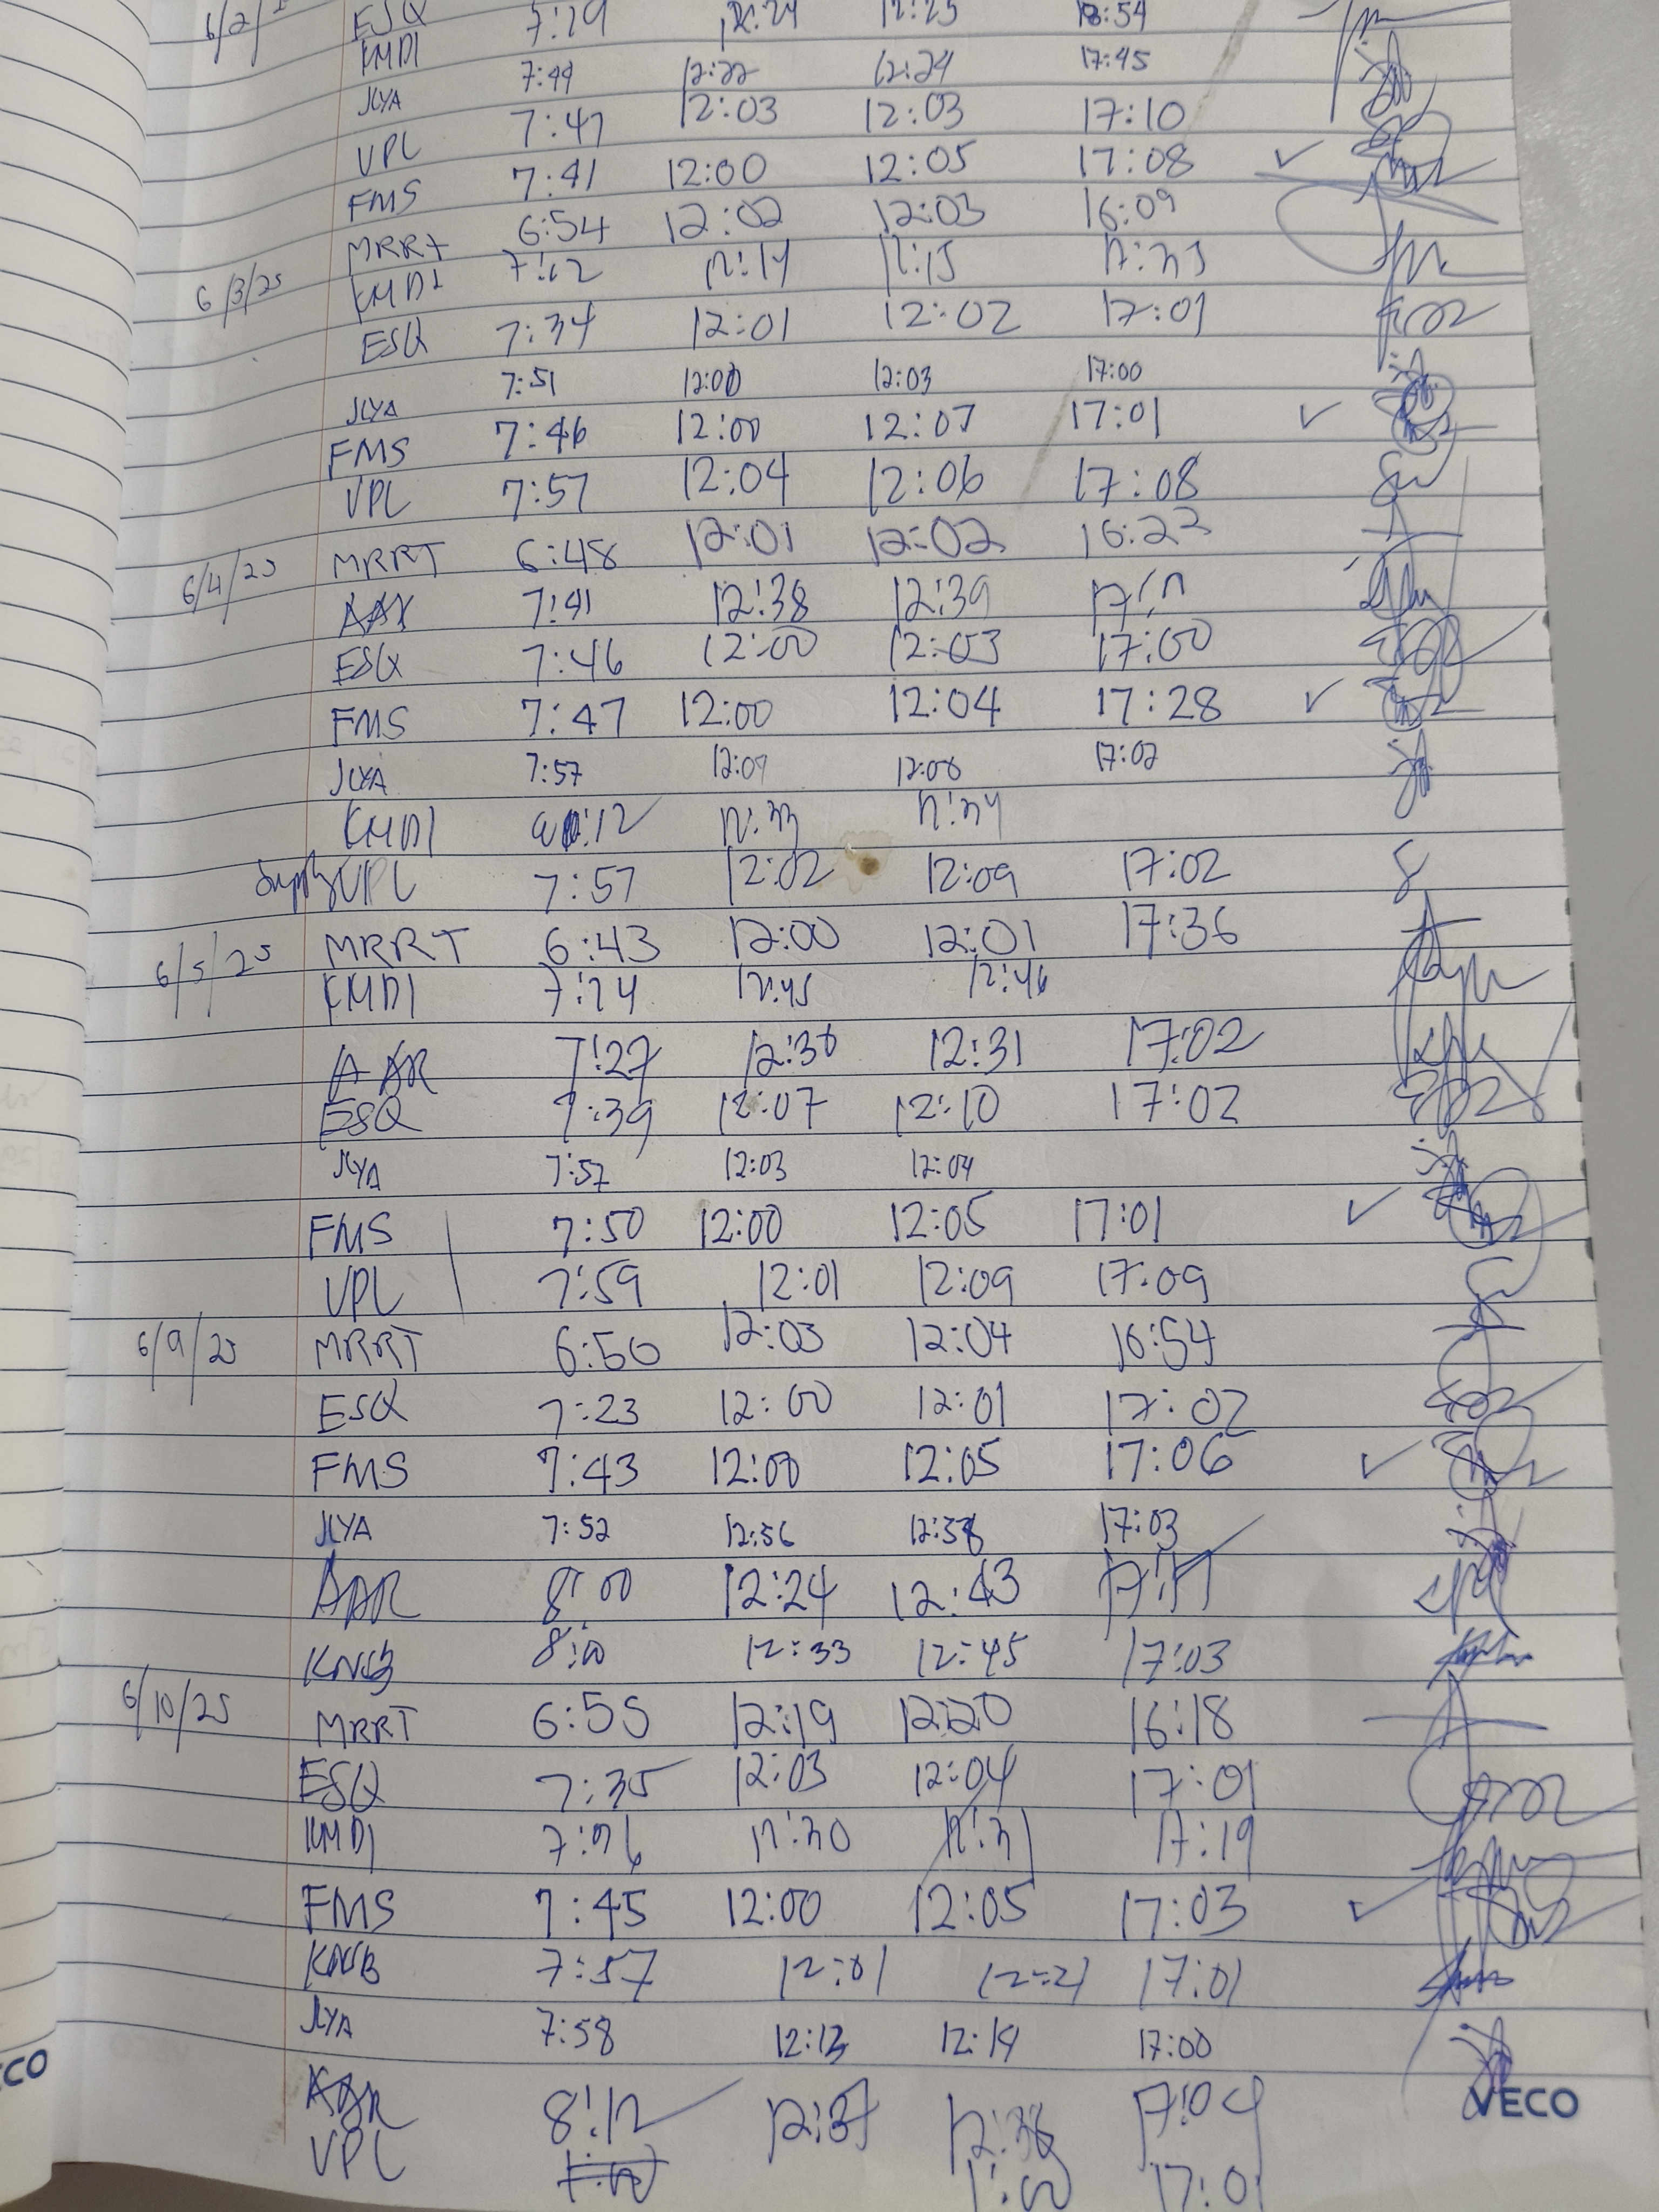 6/2/ ESQ 7:29 12:24 12:25 18:54
KMDI
7:44 12:22 12:24 17:45
JLYA 7:47 12:03 12:03 17:10
VPL 7:41 12:00 12:05 17:08 ✓
FMS 6:54 12:02 12:03 16:09
MRRT 7:12 12:14 12:15 17:33
6/3/25 KMDI
ESQ 7:34 12:01 12:02 17:01
JLYA 7:51 12:00 12:03 17:00
FMS 7:46 12:00 12:07 17:01 ✓
VPL 7:57 12:04 12:06 17:08
6/4/25 MRRT 6:48 12:01 12:02 16:22
7:41 12:38 12:39
ESQ 7:46 12:00 12:03 17:00
FMS 7:47 12:00 12:04 17:28 ✓
JLYA 7:57 12:07 12:08 17:02
KMDI 12:33 12:34
VPL 7:57 12:02 12:09 17:02
6/5/25 MRRT 6:43 12:00 12:01 17:36
KMDI 7:24 12:45 12:46
AAR 7:27 12:30 12:31 17:02
ESQ 7:39 12:07 12:10 17:02
JLYA 7:57 12:03 12:04
FMS 7:50 12:00 12:05 17:01 ✓
VPL 7:59 12:01 12:09 17:09
6/9/25 MRRT 6:50 12:03 12:04 16:54
ESQ 7:23 12:00 12:01 17:02
FMS 7:43 12:00 12:05 17:06 ✓
JLYA 7:52 12:56 12:58 17:03
AAR 8:00 12:24 12:43 17:17
KNSB 8:00 12:33 12:45 17:03
6/10/25 MRRT 6:55 12:19 12:20 16:18
ESQ 7:35 12:03 12:04 17:01
KMDI 7:36 12:30 12:31 17:19
FMS 7:45 12:00 12:05 17:03 ✓
KNSB 7:57 12:01 12:21 17:01
JLYA 7:58 12:13 12:14 17:00
AAR 8:12 12:37 12:38 17:04
VPL 7:00 1:00 17:01
VECO